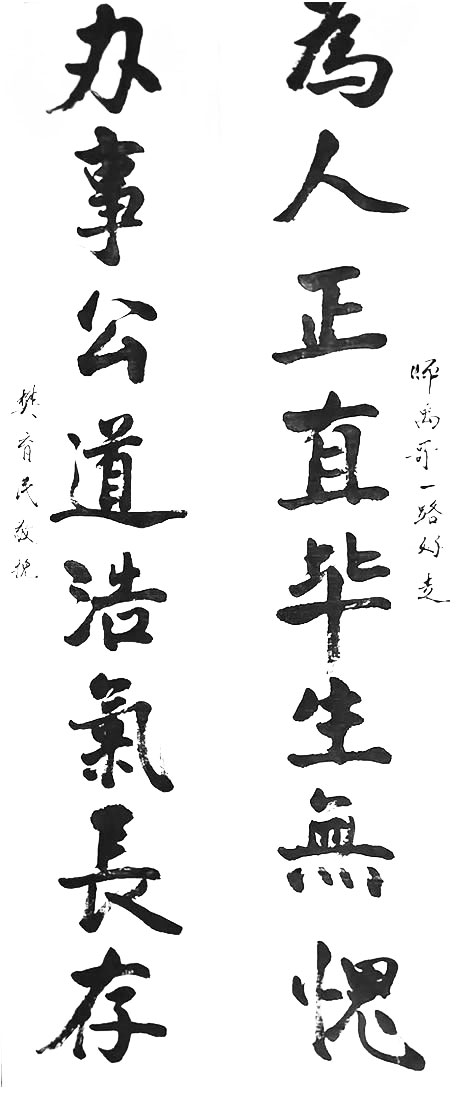 師禹哥一路好走
為人正直毕生無愧
办事公道浩氣長存
樊育民敬挽